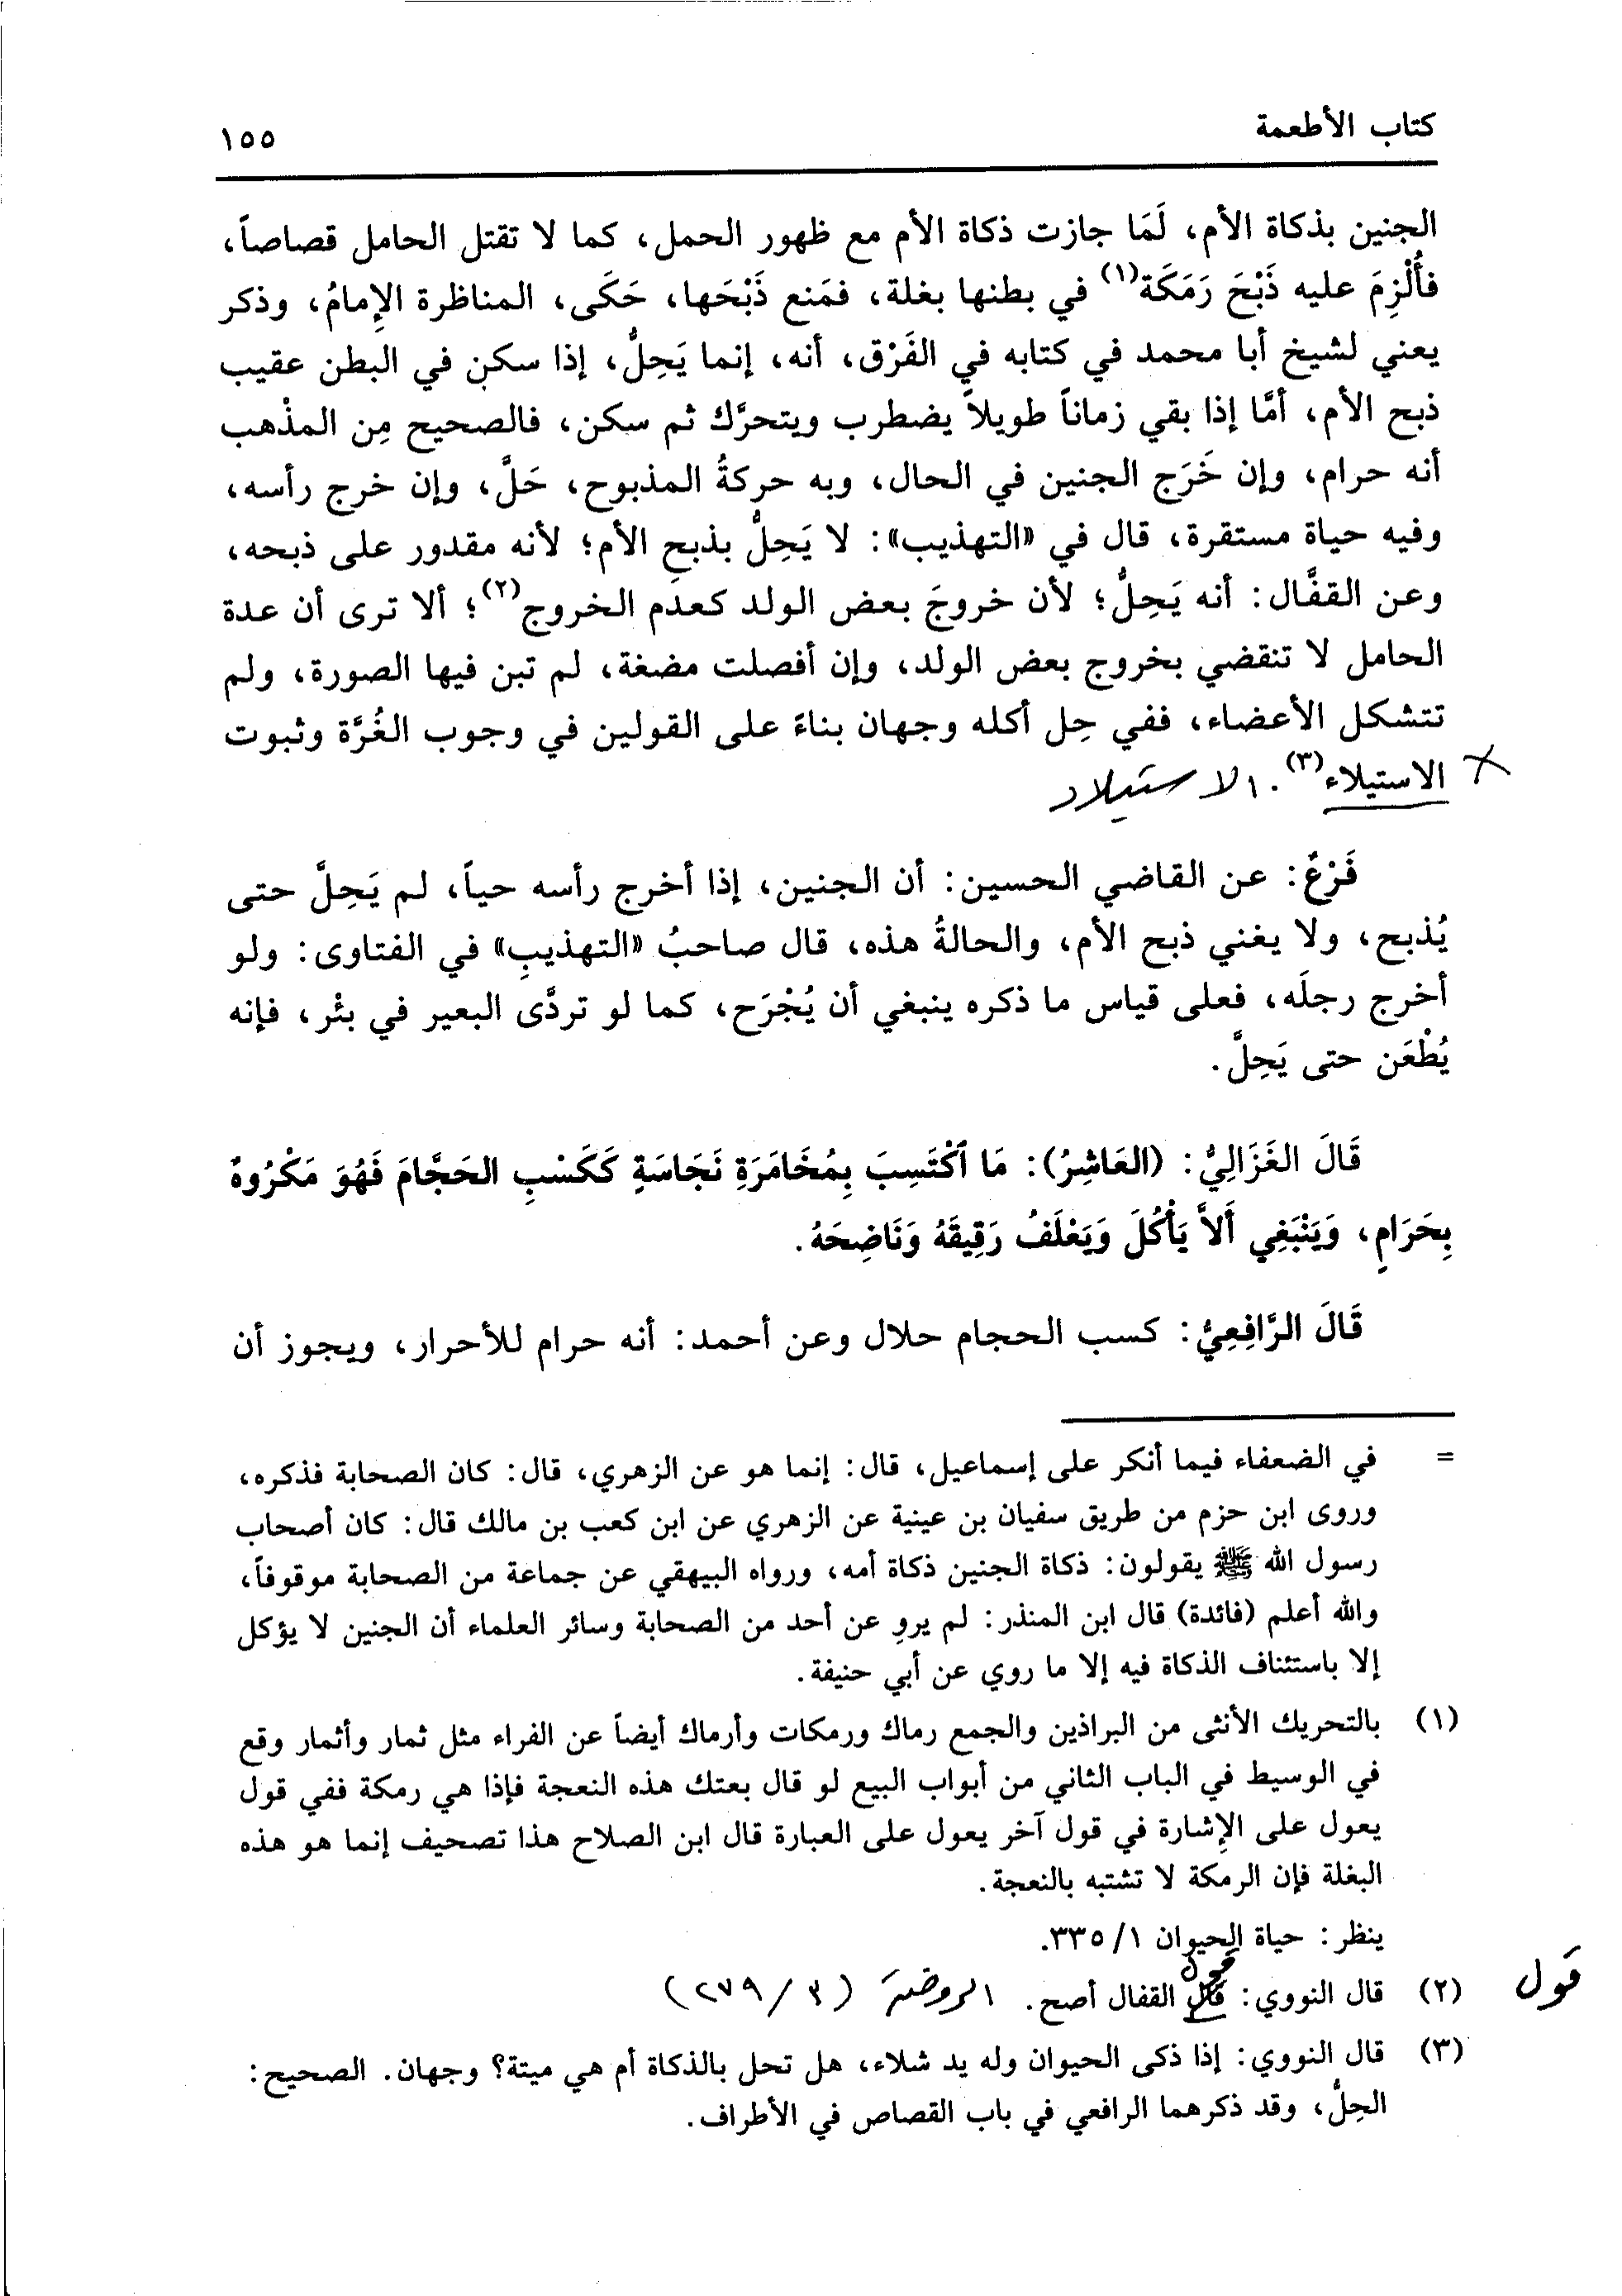 كتاب الأطعمة ١٥٥
الجنين بذكاة الأم، لَمَا جازت ذكاة الأم مع ظهور الحمل، كما لا تقتل الحامل قصاصاً،
فأُلْزِمَ عليه ذَبْحَ رَمَكَة(١) في بطنها بغلة، فمَنع ذَبْحَها، حَكَى، المناظرة الإِمامُ، وذكر
يعني لشيخ أبا محمد في كتابه في الفَرْق، أنه، إنما يَحِلُّ، إذا سكن في البطن عقيب
ذبح الأم، أمَّا إذا بقي زماناً طويلاً يضطرب ويتحرَّك ثم سكن، فالصحيح مِن المذْهب
أنه حرام، وإن خَرَج الجنين في الحال، وبه حركةُ المذبوح، حَلَّ، وإن خرج رأسه،
وفيه حياة مستقرة، قال في «التهذيب»: لا يَحِلُّ بذبحِ الأم؛ لأنه مقدور على ذبحه،
وعن القفَّال: أنه يَحِلُّ؛ لأن خروجَ بعض الولد كعدم الخروج(٢)؛ ألا ترى أن عدة
الحامل لا تنقضي بخروج بعض الولد، وإن أفصلت مضغة، لم تبن فيها الصورة، ولم
تتشكل الأعضاء، ففي حِل أكله وجهان بناءً على القولين في وجوب الغُرَّة وثبوت
الاستيلاء(٣). الاستيلاد
فَرْعٌ: عن القاضي الحسين: أن الجنين، إذا أخرج رأسه حياً، لم يَحِلَّ حتى
يُذبح، ولا يغني ذبح الأم، والحالةُ هذه، قال صاحبُ «التهذيبِ» في الفتاوى: ولو
أخرج رجلَه، فعلى قياس ما ذكره ينبغي أن يُجْرَح، كما لو تردَّى البعير في بئْر، فإنه
يُطْعَن حتى يَحِلَّ.
قَالَ الغَزَالِيُّ: (العَاشِرُ): مَا ٱكْتَسِبَ بِمُخَامَرَةِ نَجَاسَةٍ كَكَسْبِ الحَجَّامَ فَهُوَ مَكْرُوهٌ
بِحَرَامٍ، وَيَنْبَغِي أَلاَّ يَأْكُلَ وَيَعْلَفُ رَقِيقَهُ وَنَاضِحَهُ.
قَالَ الرَّافِعِيُّ: كسب الحجام حلال وعن أحمد: أنه حرام للأحرار، ويجوز أن
= في الضعفاء فيما أنكر على إسماعيل، قال: إنما هو عن الزهري، قال: كان الصحابة فذكره،
وروى ابن حزم من طريق سفيان بن عينية عن الزهري عن ابن كعب بن مالك قال: كان أصحاب
رسول الله ﷺ يقولون: ذكاة الجنين ذكاة أمه، ورواه البيهقي عن جماعة من الصحابة موقوفاً،
والله أعلم (فائدة) قال ابن المنذر: لم يروِ عن أحد من الصحابة وسائر العلماء أن الجنين لا يؤكل
إلا باستئناف الذكاة فيه إلا ما روي عن أبي حنيفة.
(١) بالتحريك الأنثى من البراذين والجمع رماك ورمكات وأرماك أيضاً عن الفراء مثل ثمار وأثمار وقع
في الوسيط في الباب الثاني من أبواب البيع لو قال بعتك هذه النعجة فإذا هي رمكة ففي قول
يعول على الإشارة في قول آخر يعول على العبارة قال ابن الصلاح هذا تصحيف إنما هو هذه
البغلة فإن الرمكة لا تشتبه بالنعجة.
ينظر: حياة الحيوان ١/ ٣٣٥.
(٢) قال النووي: قال القفال أصح. الروضة (٣/ ٢٧٩)
قول
قول
(٣) قال النووي: إذا ذكى الحيوان وله يد شلاء، هل تحل بالذكاة أم هي ميتة؟ وجهان. الصحيح:
الحِلُّ، وقد ذكرهما الرافعي في باب القصاص في الأطراف.